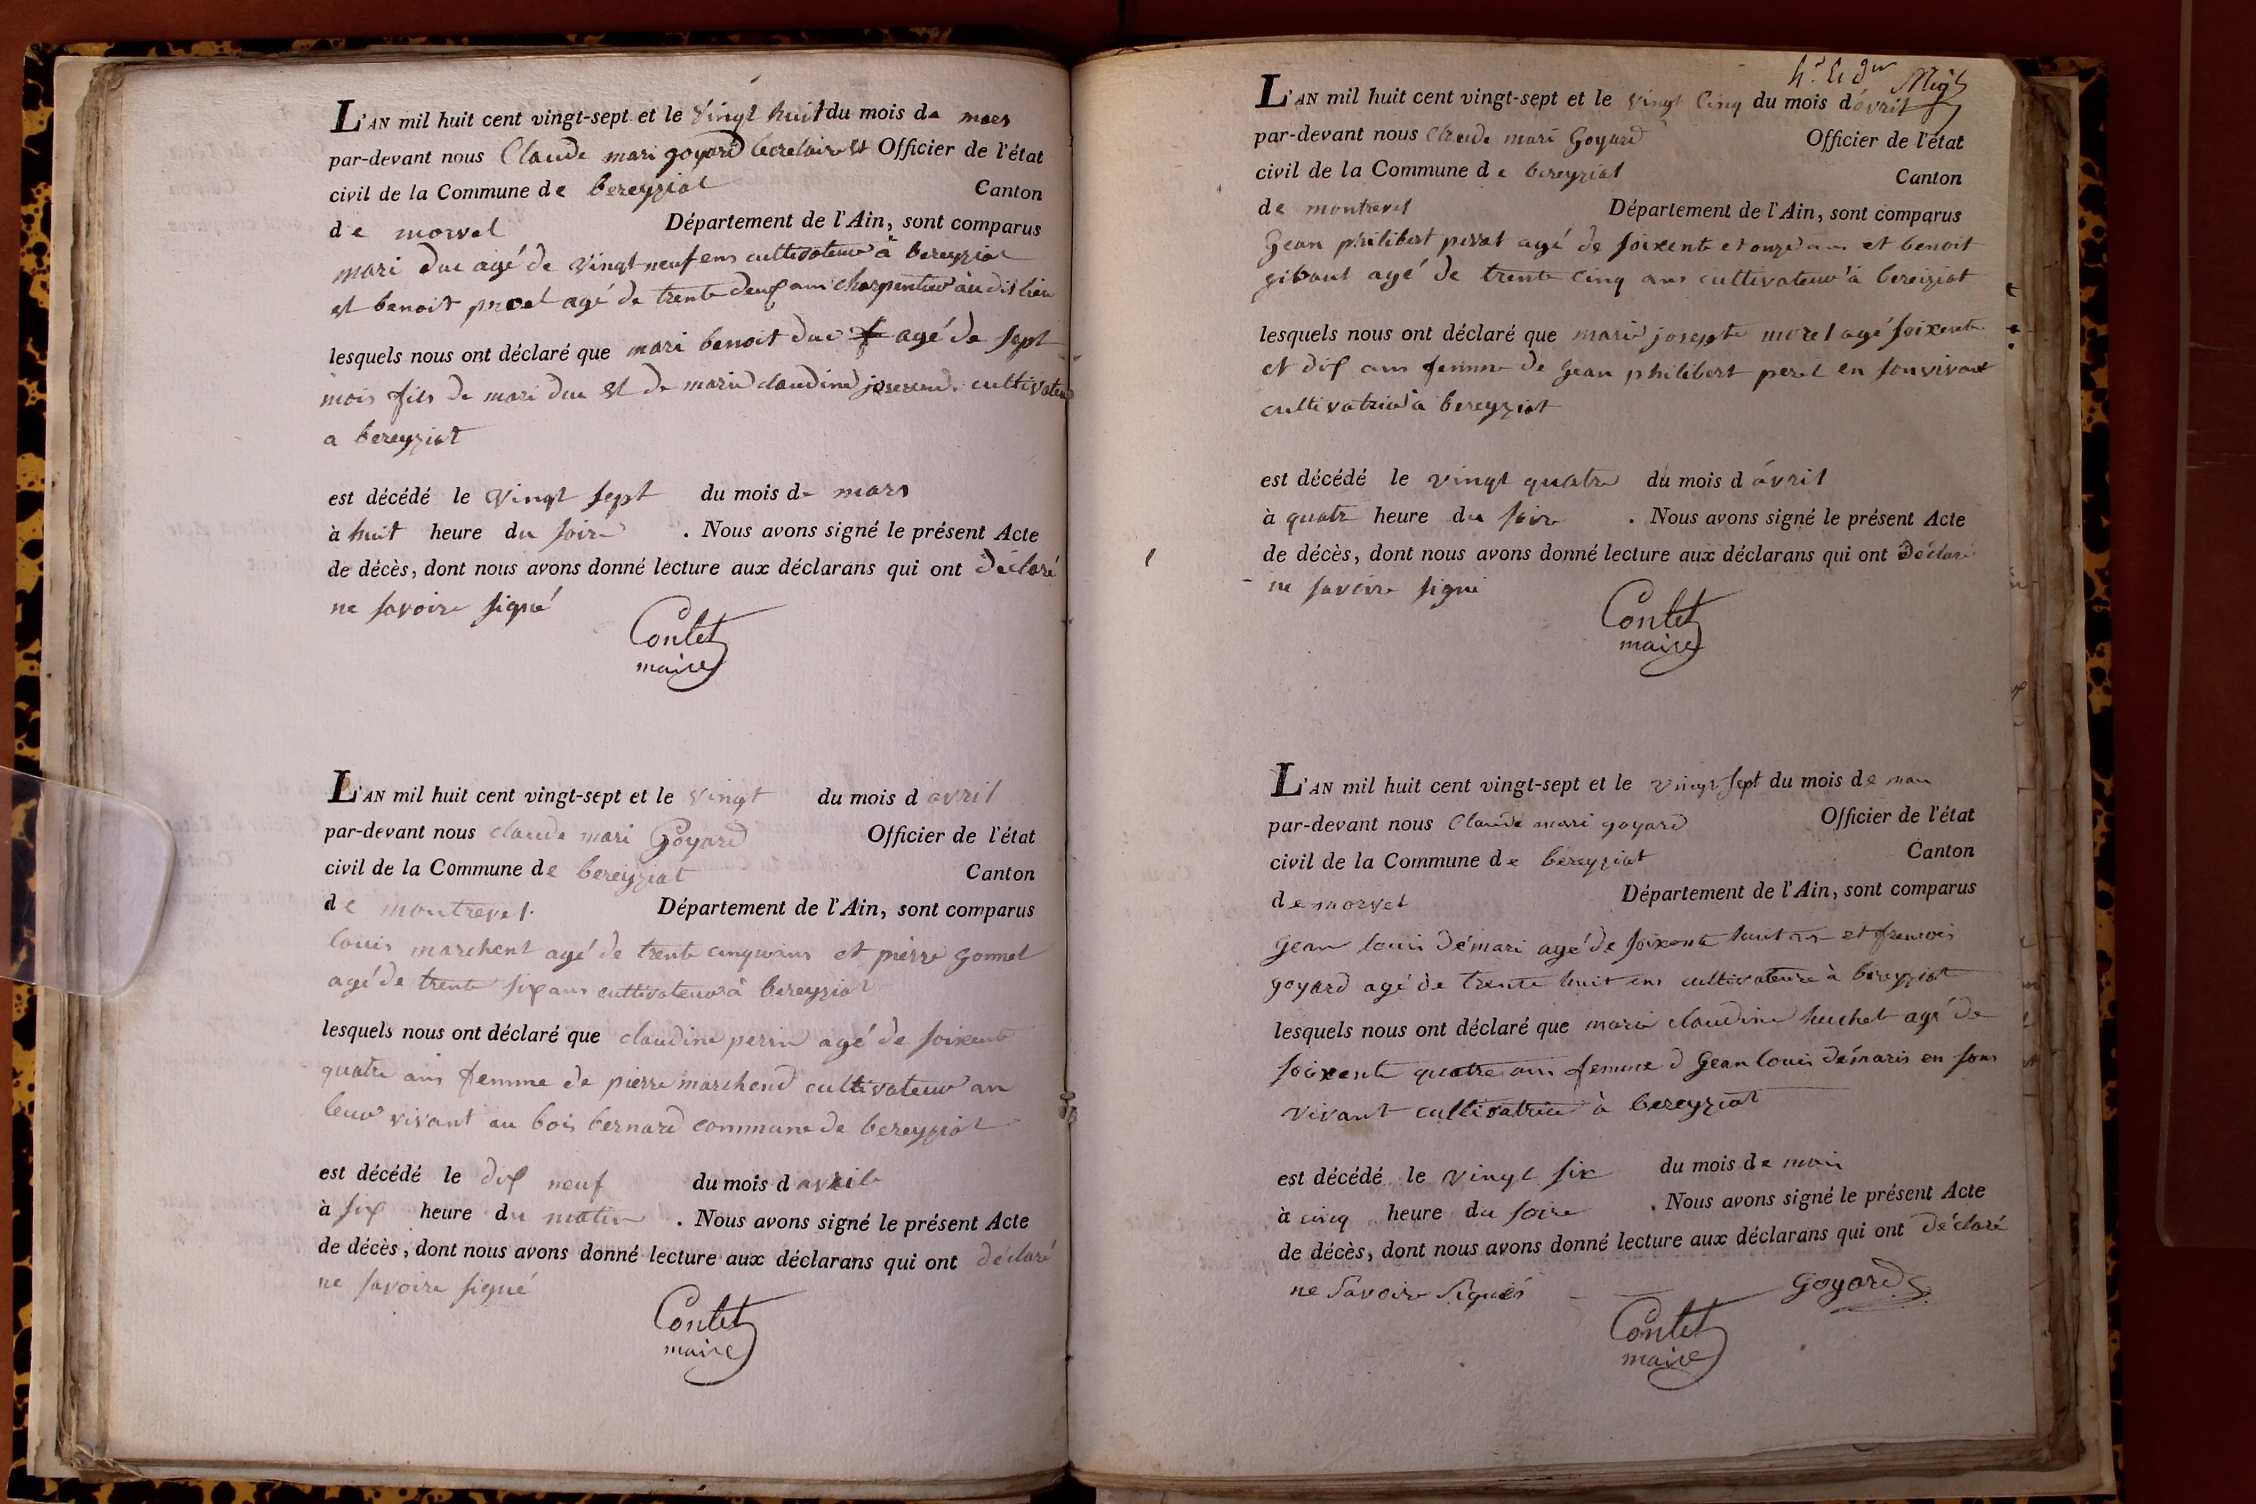 L'AN mil huit cent vingt-sept et le vingt huit du mois de mars
par-devant nous Claude mari goyard secretaire et Officier de l'état
civil de la Commune de bereyziat Canton
de morvel Département de l'Ain, sont comparus
mari duc agé de vingt neuf ens cultivateur à bereyziat
et benoit agé de trente deux ans charpentier audit lieu
lesquels nous ont déclaré que mari benoit duc agé de sept
mois fils de mari duc et de marie claudine cultivateur
a bereyziat
est décédé le vingt sept du mois de mars
à huit heure du soire . Nous avons signé le présent Acte
de décès, dont nous avons donné lecture aux déclarans qui ont déclaré
ne savoire signé
Contet
maire
L'AN mil huit cent vingt-sept et le vingt du mois d avril
par-devant nous claude mari Goyard Officier de l'état
civil de la Commune de bereyziat Canton
de montrevel. Département de l'Ain, sont comparus
louis marchent agé de trente cinq ans et pierre gonnet
agé de trente six ans cultivateur à bereyziat
lesquels nous ont déclaré que claudine perrin agé de soixente
quatre ans femme de pierre marchend cultivateur an
leur vivant au bois bernard commune de bereyziat
est décédé le dix neuf du mois d avrile
à six heure du matin . Nous avons signé le présent Acte
de décès, dont nous avons donné lecture aux déclarans qui ont déclaré
ne savoire signé
Contet
maire
L'AN mil huit cent vingt-sept et le vingt cinq du mois d'avril
par-devant nous Claude mari Goyard Officier de l'état
civil de la Commune de bereyziat Canton
de montrevel Département de l'Ain, sont comparus
Gean philibert perrat agé de soixente et onze ans et benoit
gibaut agé de trente cinq ans cultivateur à bereiziat
lesquels nous ont déclaré que marie josepte morel agé soixente
et dix ans femme de gean philibert peret en son vivant
cultivatrice à bereyziat
est décédé le vingt quatre du mois d avril
à quatr heure du soire . Nous avons signé le présent Acte
de décès, dont nous avons donné lecture aux déclarans qui ont déclaré
ne savoire signé
Contet
maire
L'AN mil huit cent vingt-sept et le vingt sept du mois de mai
par-devant nous Claude mari goyard Officier de l'état
civil de la Commune de bereyziat Canton
de morvel Département de l'Ain, sont comparus
gean louis démari agé de soixente huit ans et frencois
goyard agé de trente huit ens cultivateure à bereyziat
lesquels nous ont déclaré que marie claudine huchet agé de
soixente quatre ans femme d gean louis démaris en son
vivant cultivatrice à bereyziat
est décédé le vingt six du mois de mai
à cinq heure du soire . Nous avons signé le présent Acte
de décès, dont nous avons donné lecture aux déclarans qui ont déclaré
ne savoire signés
goyard
Contet
maire